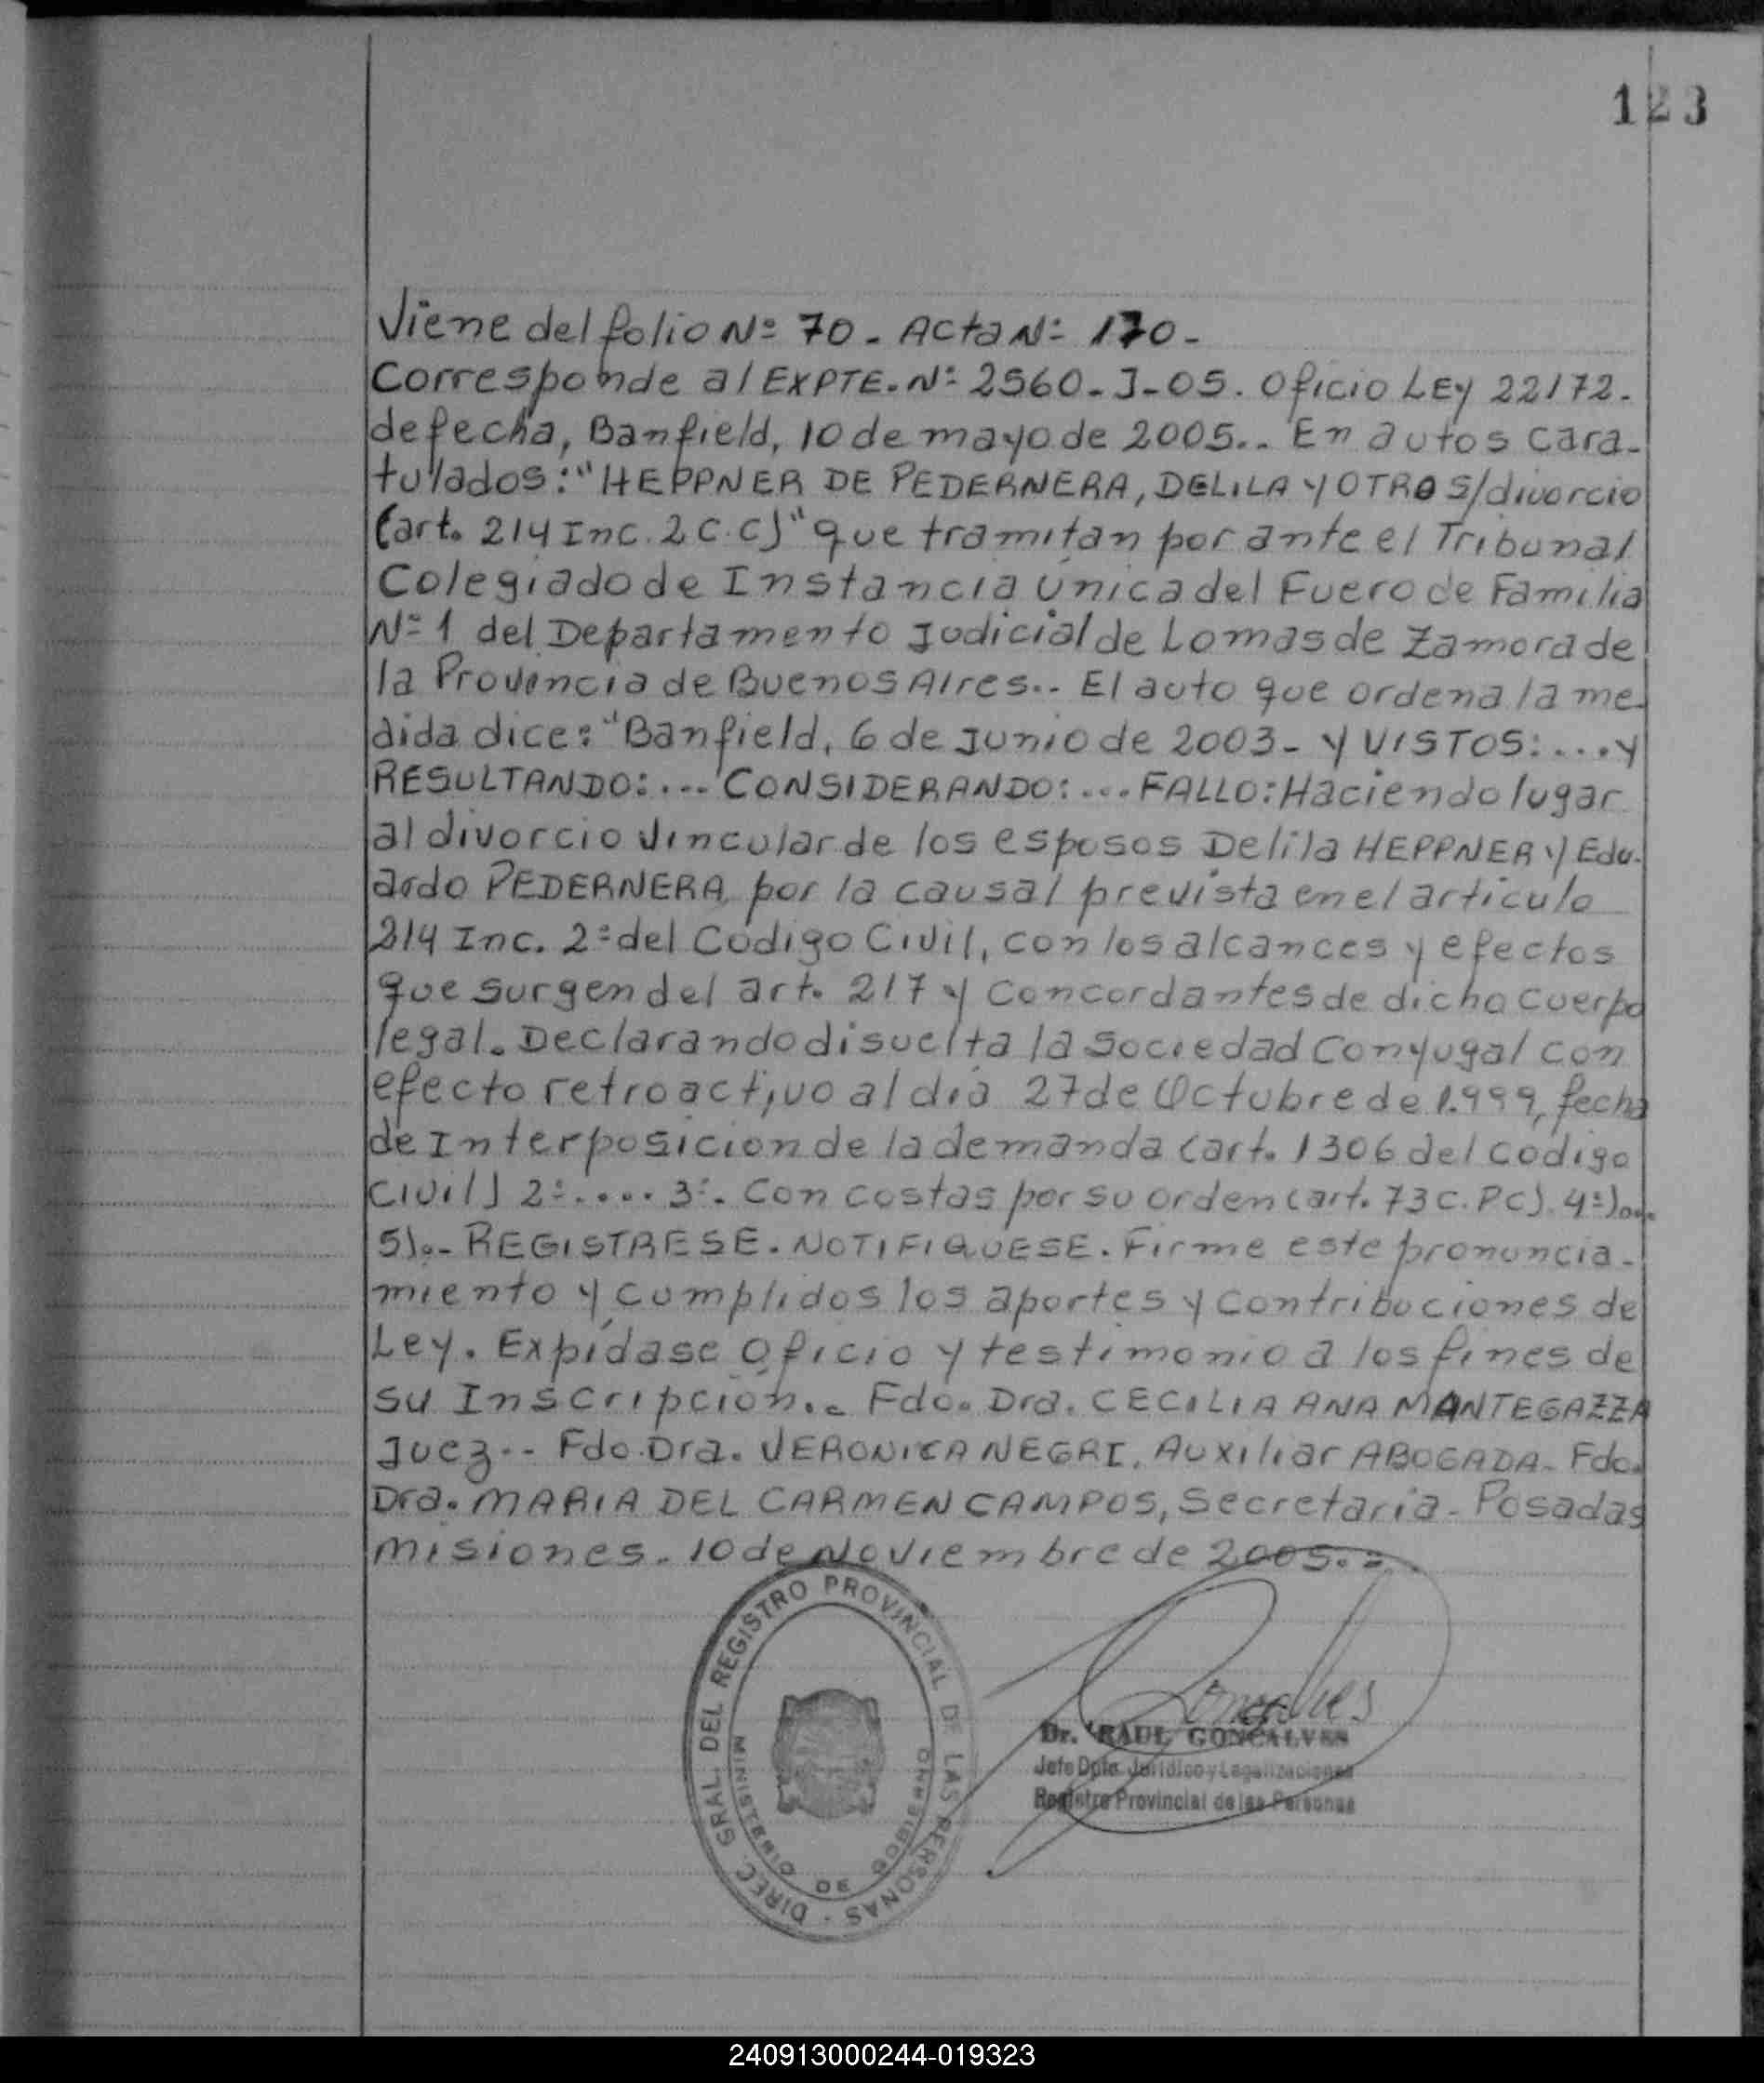 123
Viene del folio Nº 70 - Acta Nº 170 -
Corresponde al EXPTE. Nº 2560-J-05. Oficio LEY 22172.
de fecha, Banfield, 10 de mayo de 2005.. En autos cara-
tulados: "HEPPNER DE PEDERNERA, DELILA Y OTRO S/divorcio
(art. 214 Inc. 2 C.C)" que tramitan por ante el Tribunal
Colegiado de Instancia Única del Fuero de Familia
Nº 1 del Departamento Judicial de Lomas de Zamora de
la Provincia de Buenos Aires.. El auto que ordena la me-
dida dice: "Banfield, 6 de Junio de 2003- Y VISTOS:....y
RESULTANDO:... CONSIDERANDO:... FALLO: Haciendo lugar
al divorcio vincular de los esposos Delila HEPPNER y Edu-
ardo PEDERNERA por la causal prevista en el artículo
214 Inc. 2º del Código Civil, con los alcances y efectos
que surgen del art. 217 y concordantes de dicho cuerpo
legal. Declarando disuelta la Sociedad Conyugal con
efecto retroactivo al día 27 de Octubre de 1.999, fecha
de Interposición de la demanda (art. 1306 del código
Civil) 2º..... 3º. Con costas por su orden (art. 73 C.PC). 4º)...
5).- REGISTRESE. NOTIFIQUESE. Firme este pronuncia-
miento y cumplidos los aportes y contribuciones de
Ley. Expídase Oficio y testimonio a los fines de
su Inscripción.. Fdo. Dra. CECILIA ANA MANTEGAZZA
Juez.. Fdo. Dra. VERONICA NEGRI. Auxiliar ABOGADA- Fdo.
Dra. MARIA DEL CARMEN CAMPOS, Secretaria- Posadas
misiones. 10 de Noviembre de 2005.=
DIREC. GRAL. DEL REGISTRO PROVINCIAL DE LAS PERSONAS -
MINISTERIO DE GOBIERNO
Goncalves
Dr. RAUL GONCALVES
Jefe Dpto. Jurídico y Legalizaciones
Registro Provincial de las Personas
240913000244-019323